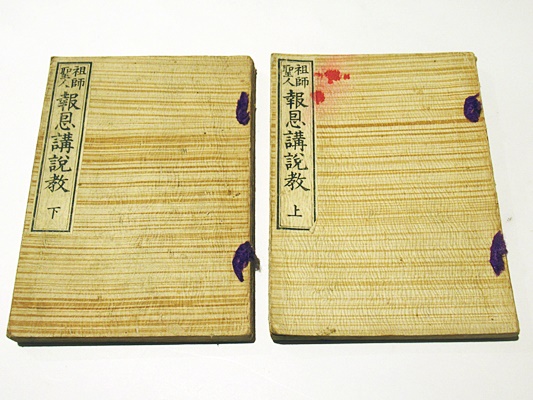 祖師
聖人
報恩講說教
上
祖師
聖人
報恩講說教
下